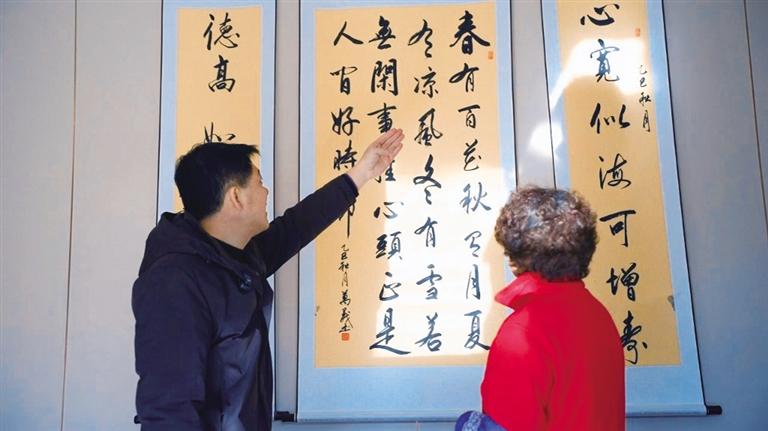 乙巳秋月
心寬似海可增壽
春有百花秋有月夏
有凉風冬有雪若
無閑事挂心頭正是
人间好時节
乙巳秋月
德高如